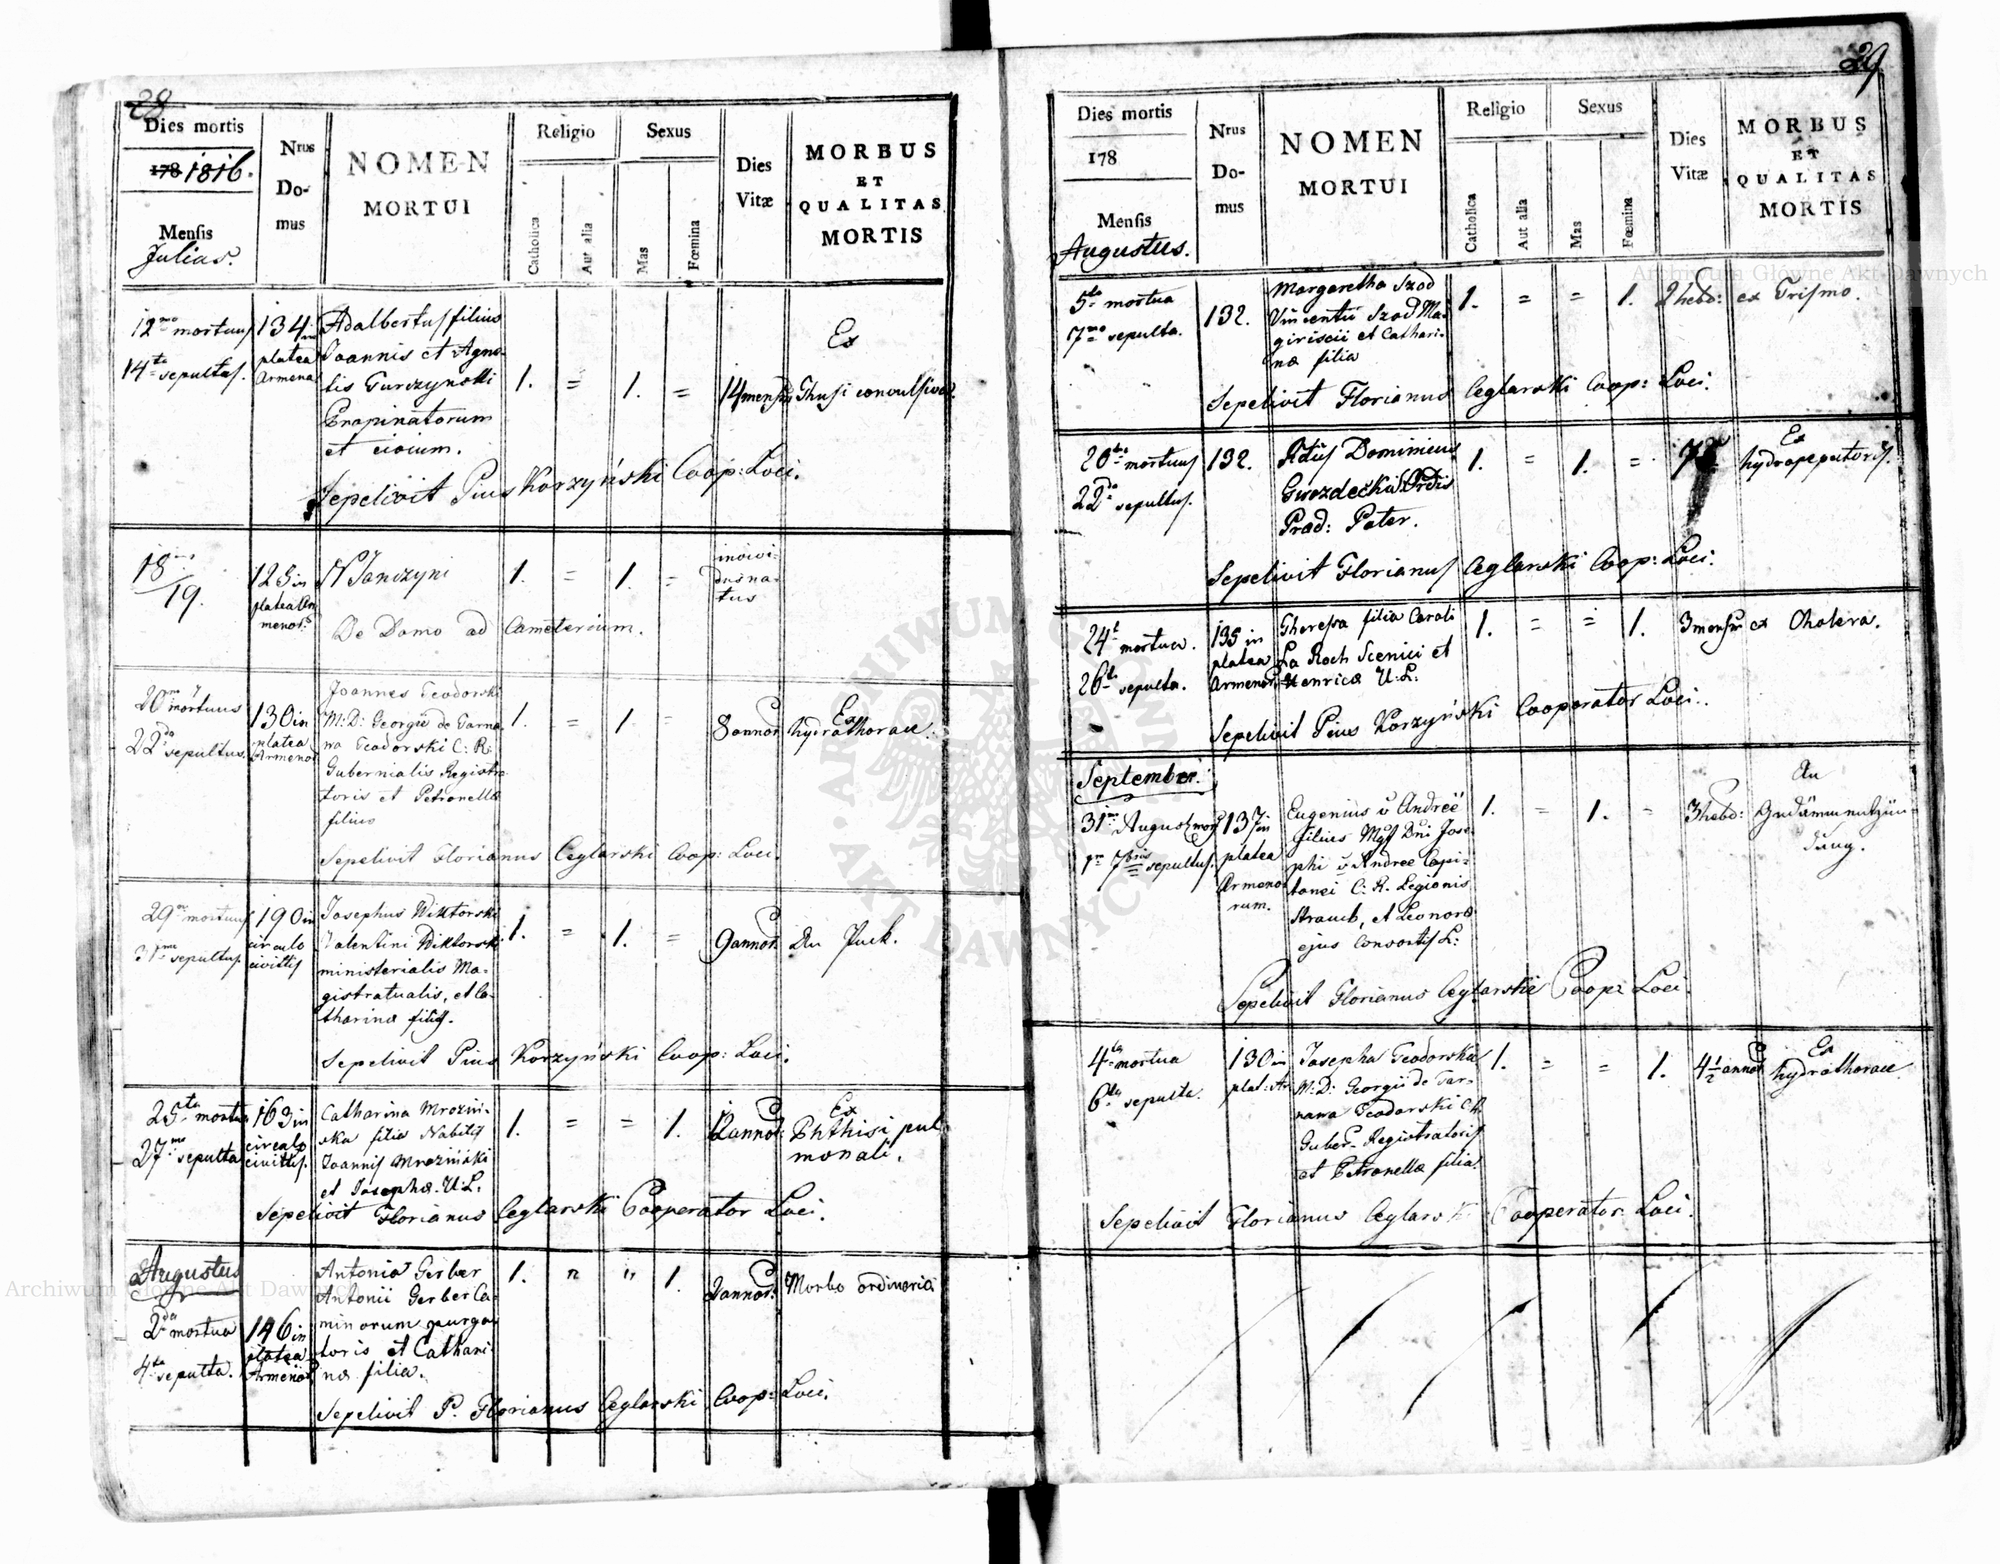 28
Dies mortis
178 1816.
Mensis
Julius.
Nrus
Do-
mus
NOMEN
MORTUI
Religio
Catholica
Aut alia
Sexus
Mas
Fœmina
Dies
Vitæ
MORBUS
ET
QUALITAS
MORTIS
12mo mortuus
14ta sepultus.
134 in
platea
Armena
Adalbertus filius
Joannis et Agne-
tis Gurczynski
Propinatorum
et civium.
1. = 1. =
14 mensiu
Ex
Thusi convulsiva.
Sepelivit Pius Korzyński Coop: Loci.
18mo
19.
123 in
platea Ar
menor:
N Janczyni
1. = 1. =
inoivi-
dus na-
tus
De Domo ad Cæmeterium.
20ma mortuus
22da sepultus.
130 in
platea
Armenor
Joannes Teodorski
M: D: Georgii de Tarna-
wa Teodorski C: R:
Gubernialis Registra
toris et Petronellæ
filius
1. = 1. =
8 annor.
Ex
hydrothorace.
Sepelivit Florianus Ceglarski Coop: Loci.
29na mortuus
31ma sepultus.
190 in
circulo
civittis
Josephus Wiktorski
Valentini Wiktorski
ministerialis Ma-
gistratualis, et Ca-
tharinæ filius.
1. = 1. =
9 annor.
An
Sepelivit Pius Korzyński Coop: Loci.
25ta mortua
27ma sepulta
163 in
circulo
civittis.
Catharina Mroziń-
ska filia Nobilis
Joannis Mroziński
et Josephæ. U: L.
1. = = 1.
12 annor:
Ex
Phthisi pul
monali.
Sepelivit Florianus Ceglarski Cooperator Loci.
Augustus
2da mortua
4ta sepulta.
146 in
platea
Armenor
Antonia Gerber
Antonii Gerber Ca-
minorum purga-
toris et Cathari-
næ filia.
1. " " 1.
2 annor.
Morbo ordinario
Sepelivit P. Florianus Ceglarski Coop: Loci.
29
Dies mortis
178
Mensis
Augustus.
Nrus
Do-
mus
NOMEN
MORTUI
Religio
Catholica
Aut alia
Sexus
Mas
Fœmina
Dies
Vitæ
MORBUS
ET
QUALITAS
MORTIS
5ta mortua
7mo sepulta.
132.
Margaretha Szod
Vincentii Szod Ma-
giriscii et Cathari-
næ filia
1. = = 1.
2 hebd:
ex Trismo.
Sepelivit Florianus Ceglarski Coop: Loci.
20ma mortuus
22da sepultus.
132.
Rdus Dominicus
Gwozdecki Ordis
Præd: Pater.
1. = 1. =
Ex
Sepelivit Florianus Ceglarski Coop: Loci.
24t mortua.
26ta sepulta.
135 in
platea
Armenor
Theresa filia Caroli
La Roch Scenici et
Henricæ U: L:
1. = = 1.
3 mensiu
ex Cholera.
Sepelivit Pius Korzyński Cooperator Loci.
September.
31ma August mor
1a 7bris sepultus.
137 in
platea
Armeno
rum.
Eugenius v Andreé
filius Mgf Dni Jose-
phi v Andree Capi-
tanei C: R. Legionis
Strauch, et Leonoræ
ejus Consortis L:
1. = 1. =
3 hebd:
An
Sepelivit Florianus Ceglarski Coop: Loci.
4ta mortua
6ta sepulta.
130 in
plat: Ar
Josepha Teodorska
M: D: Georgii de Tar-
nawa Teodorski C R
Guber. Registratoris
et Petronellæ filia.
1. = = 1.
4 1/2 annor
Ex
hydrothorace
Sepelivit Florianus Ceglarski Cooperator Loci.
Archiwum Główne Akt Dawnych
Archiwum Główne Akt Dawnych
ARCHIWUM GŁÓWNE AKT DAWNYCH